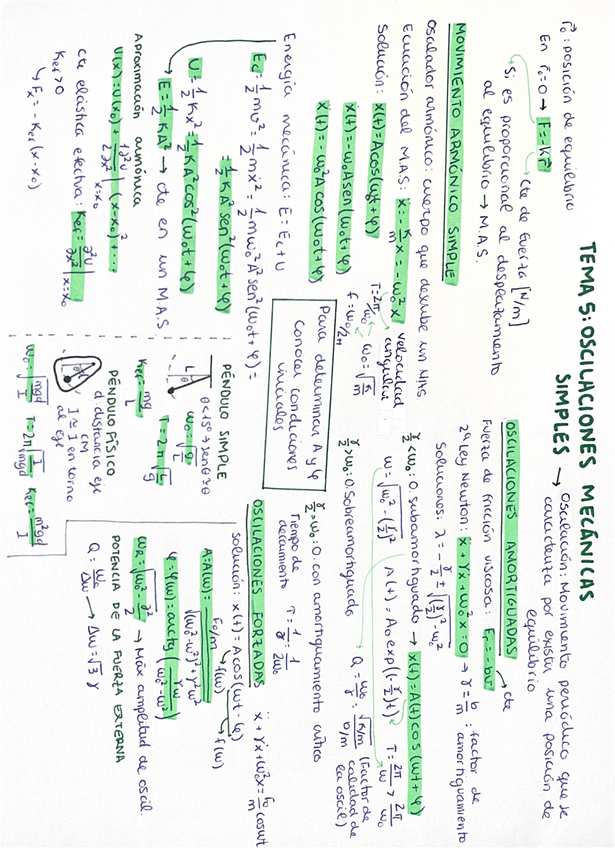 TEMA 5: OSCILACIONES MECÁNICAS
SIMPLES → Oscilación: Movimiento periódico que se
caracteriza por existir una posición de
equilibrio
r⃗₀: posición de equilibrio
En r⃗₀=0 → F=-Kr⃗
Cte de Fuerza [N/m]
Si es proporcional al desplazamiento
al equilibrio → M.A.S.
MOVIMIENTO ARMÓNICO SIMPLE
Oscilador armónico: cuerpo que describe un MAS
Ecuación del M.A.S: ẍ = -K/m x = -ω₀² x
velocidad
angular
Solución: x(t)=Acos(ω₀t+φ)
T=2π/ω₀
ω₀=√(K/m)
f=ω₀/2π
ẋ(t)=-ω₀Asen(ω₀t+φ)
ẍ(t)=-ω₀²Acos(ω₀t+φ)
Energía mecánica: E=Ec+U
Ec=1/2 mv²=1/2 mẋ²=1/2 mω₀²A²sen²(ω₀t+φ)=
=1/2 KA²sen²(ω₀t+φ)
U=1/2 Kx²=1/2 KA²cos²(ω₀t+φ)
E=1/2 KA² → cte en un MAS
Aproximación armónica
U(x)=U(x₀)+1/2 ∂²U/∂x² |x=x₀ (x-x₀)²+...
cte elástica efectiva: Kef=∂²U/∂x² |x=x₀
Kef>0
↳ Fx=-Kef(x-x₀)
Para determinar A y φ
conocer condiciones
iniciales
PÉNDULO SIMPLE
θ<15° → senθ≃θ
L
θ
ω₀=√(g/L)
T=2π√(L/g)
Kef=mg/L
PÉNDULO FÍSICO
d: distancia eje
CM
I ≃ I en torno
al eje
ω₀=√(mgd/I) T=2π√(I/mgd) Kef=m²gd/I
OSCILACIONES AMORTIGUADAS
Fuerza de fricción viscosa: Fr=-bv⃗
cte
2ª Ley Newton: ẍ+γẋ+ω₀²x=0 → γ=b/m : factor de
amortiguamiento
Soluciones: λ=-γ/2 ± √((γ/2)²-ω₀²)
γ/2<ω₀: O. subamortiguado → x(t)=A(t)cos(ωt+φ)
ω=√(ω₀²-(γ/2)²) A(t)=A₀exp((-γ/2)t) T=2π/ω > 2π/ω₀
γ/2>ω₀: O. Sobreamortiguado
Q=ω₀/γ=√(K/m)/(b/m) (Factor de
calidad de
la oscil)
γ/2=ω₀: O. con amortiguamiento crítico
Tiempo de
decaimiento τ=1/γ=1/2ω₀
OSCILACIONES FORZADAS ẍ+γẋ+ω₀²x=F₀/m cosωt
Solución: x(t)=Acos(ωt-φ)
A=A(ω)=(F₀/m)/√((ω₀²-ω²)²+γ²ω²) → f(ω)
φ=φ(ω)=arctg(γω/(ω₀²-ω²)) → f(ω)
ωR=√(ω₀²-γ²/2) → Máx amplitud de oscil.
POTENCIA DE LA FUERZA EXTERNA
Q=ω₀/Δω → Δω=√3 γ